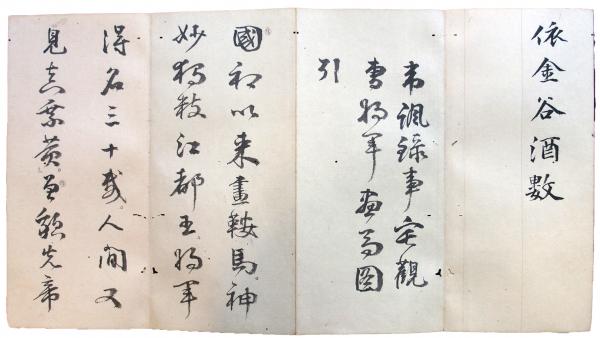 依金谷酒數
韋諷錄事宅觀
曹將軍畫馬圖
引
國初以來畫鞍馬神
妙獨數江都王將軍
得名三十載人間又
見真乘黃曾貌先帝